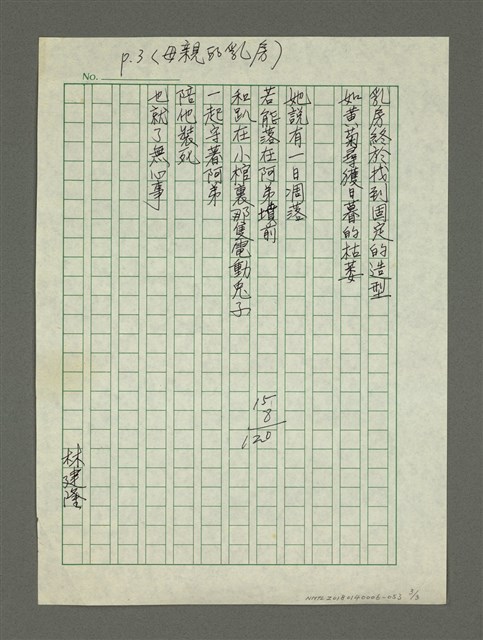 p.3（母親的乳房）
No.
乳房終於找到固定的造型
如黃菊尋獲日暮的枯萎
她說有一日凋落
若能落在阿弟墳前
和趴在小棺裏那隻電動兔子
一起守著阿弟
陪他裝死
也就了無心事
15
8
120
林建隆
NMTL20180140006-053
3/3